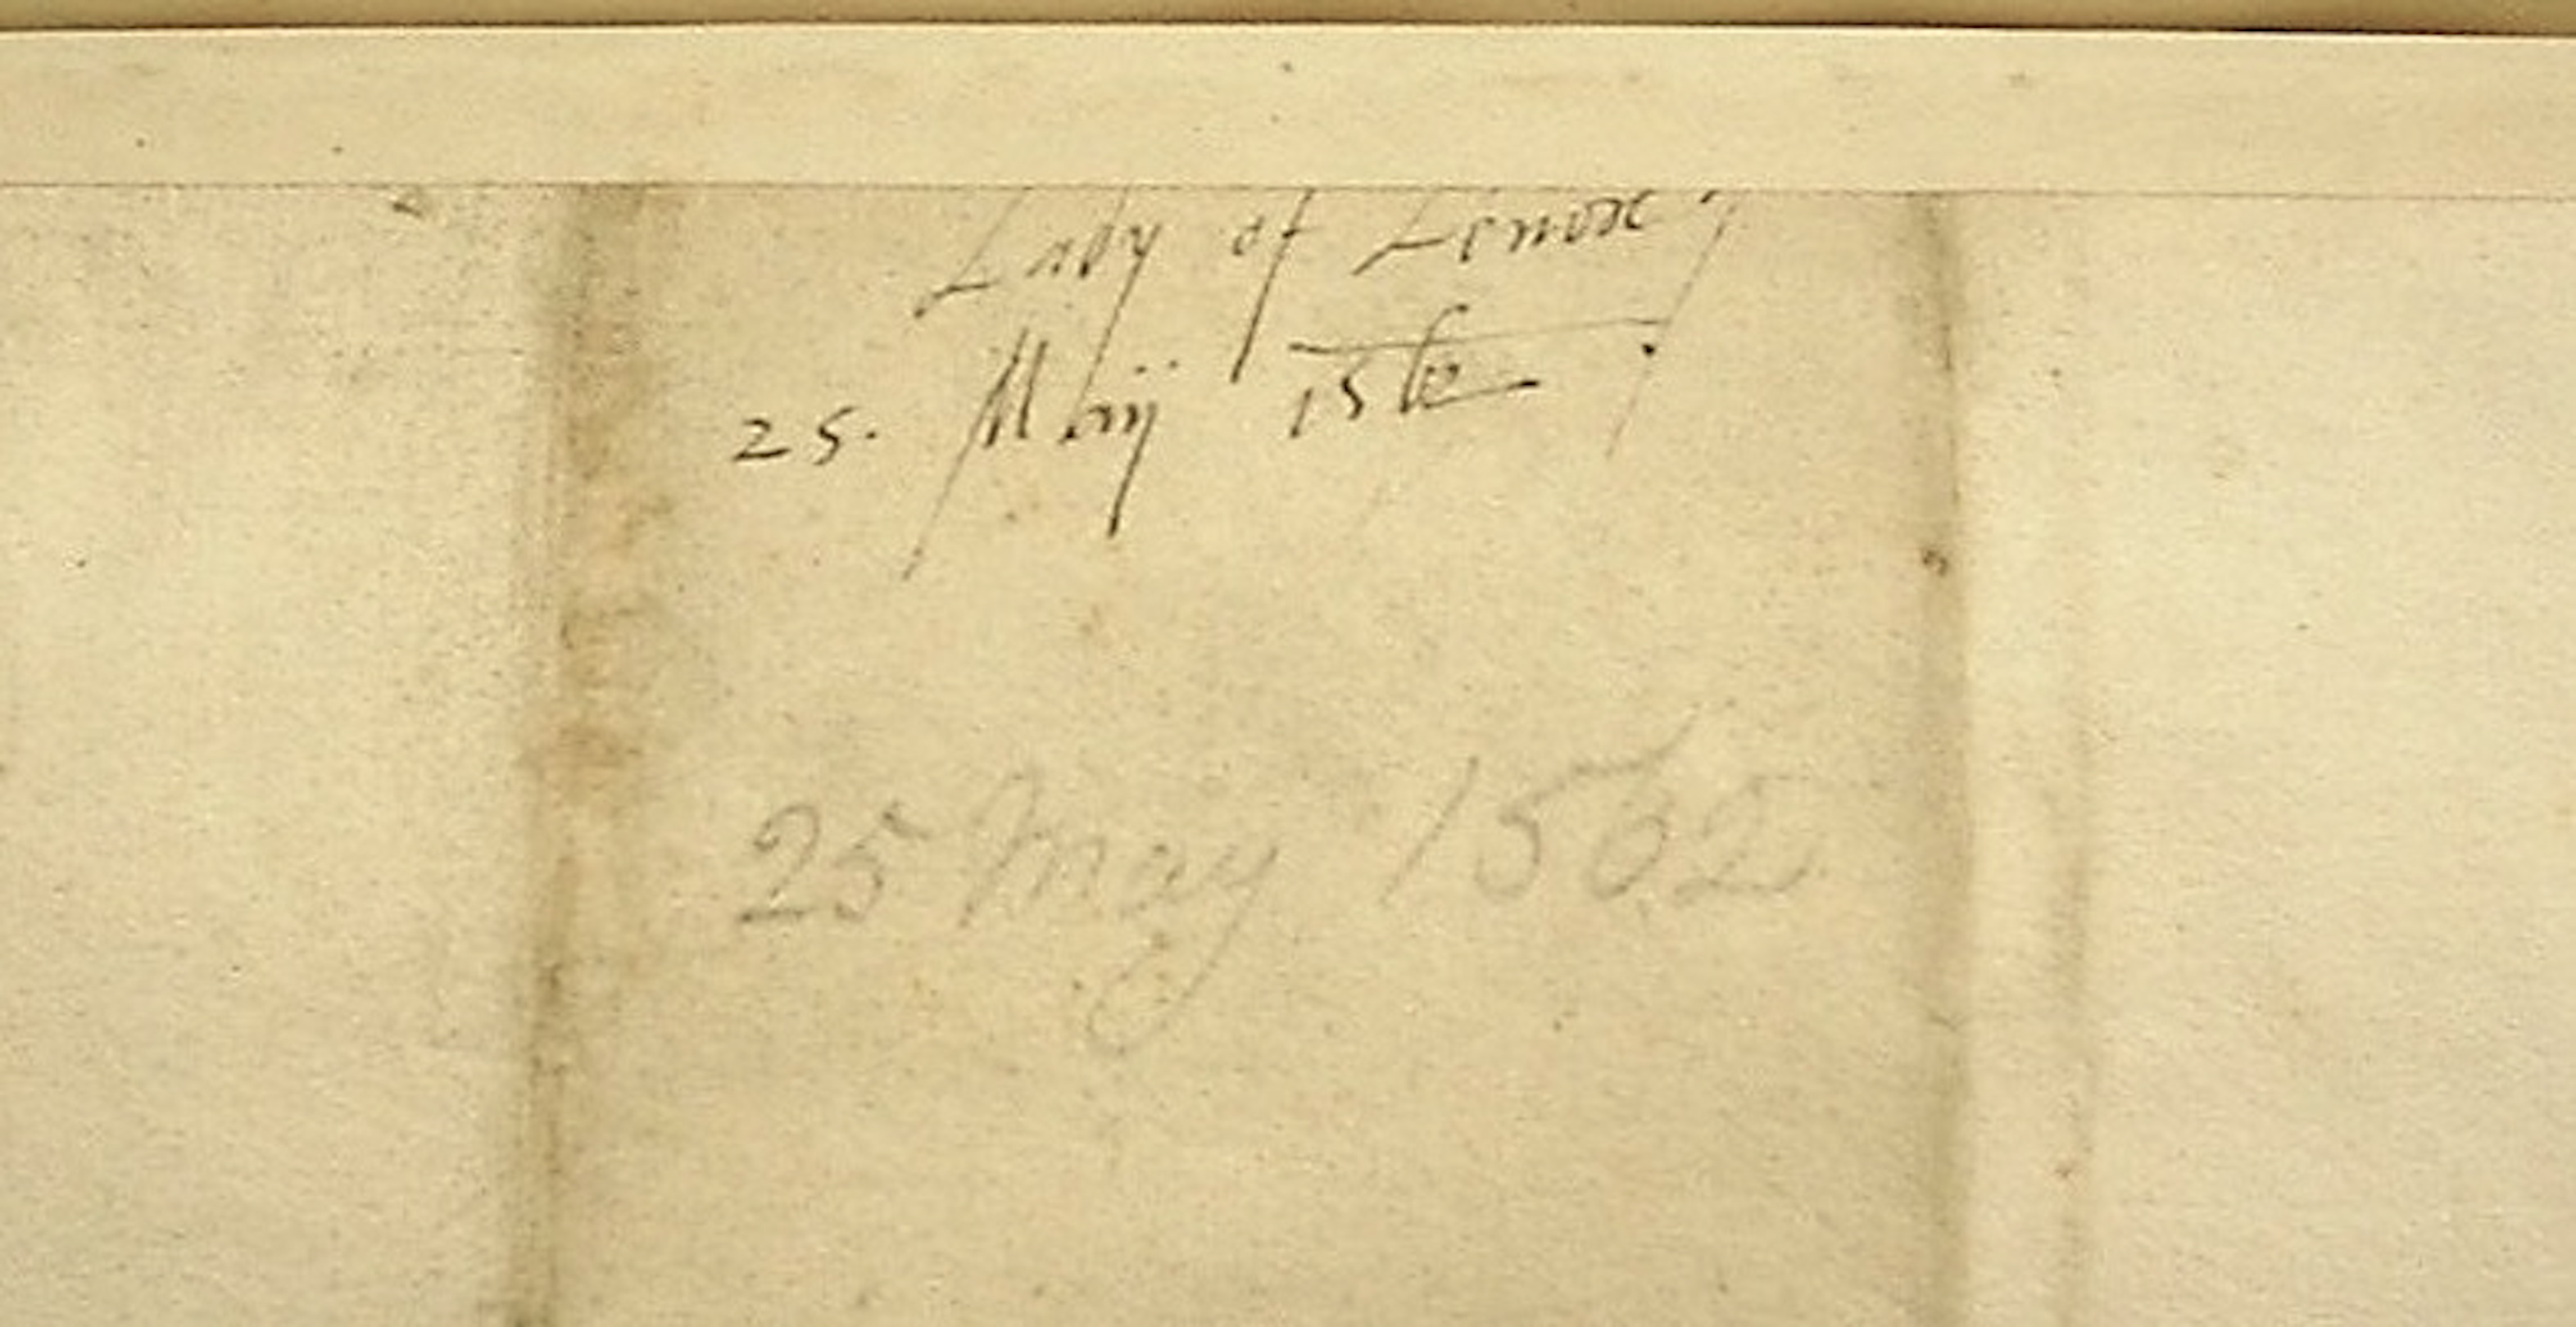 Lady of Lenox
25. Maij 1562
25 May 1562